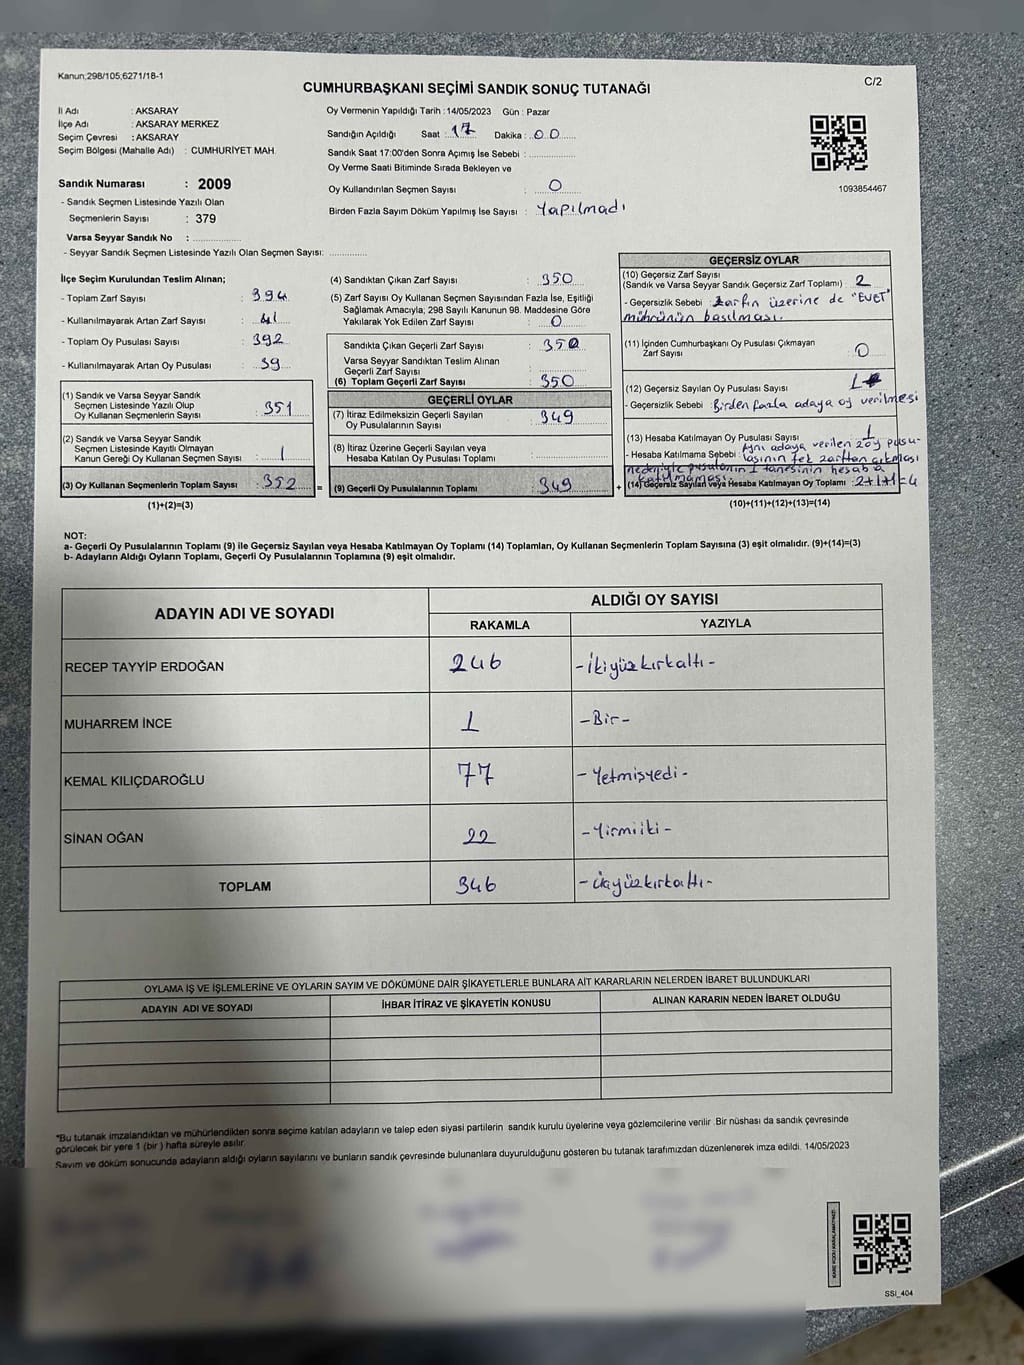 Kanun;298/105,6271/18-1
C/2
CUMHURBAŞKANI SEÇİMİ SANDIK SONUÇ TUTANAĞI
İl Adı : AKSARAY
İlçe Adı : AKSARAY MERKEZ
Seçim Çevresi : AKSARAY
Seçim Bölgesi (Mahalle Adı) : CUMHURİYET MAH.
Sandık Numarası : 2009
- Sandık Seçmen Listesinde Yazılı Olan
Seçmenlerin Sayısı : 379
Varsa Seyyar Sandık No :
- Seyyar Sandık Seçmen Listesinde Yazılı Olan Seçmen Sayısı:
Oy Vermenin Yapıldığı Tarih : 14/05/2023 Gün : Pazar
Sandığın Açıldığı Saat : 17 Dakika : 00
Sandık Saat 17:00'den Sonra Açımış İse Sebebi :
Oy Verme Saati Bitiminde Sırada Bekleyen ve
Oy Kullandırılan Seçmen Sayısı : 0
Birden Fazla Sayım Döküm Yapılmış İse Sayısı : Yapılmadı
1093854467
İlçe Seçim Kurulundan Teslim Alınan;
- Toplam Zarf Sayısı : 394
- Kullanılmayarak Artan Zarf Sayısı : 41
- Toplam Oy Pusulası Sayısı : 392
- Kullanılmayarak Artan Oy Pusulası : 39
(1) Sandık ve Varsa Seyyar Sandık
Seçmen Listesinde Yazılı Olup
Oy Kullanan Seçmenlerin Sayısı : 351
(2) Sandık ve Varsa Seyyar Sandık
Seçmen Listesinde Kayıtlı Olmayan
Kanun Gereği Oy Kullanan Seçmen Sayısı : 1
(3) Oy Kullanan Seçmenlerin Toplam Sayısı : 352
(1)+(2)=(3)
(4) Sandıktan Çıkan Zarf Sayısı : 350
(5) Zarf Sayısı Oy Kullanan Seçmen Sayısından Fazla İse, Eşitliği
Sağlamak Amacıyla, 298 Sayılı Kanunun 98. Maddesine Göre
Yakılarak Yok Edilen Zarf Sayısı : 0
Sandıkta Çıkan Geçerli Zarf Sayısı : 350
Varsa Seyyar Sandıktan Teslim Alınan
Geçerli Zarf Sayısı :
(6) Toplam Geçerli Zarf Sayısı : 350
GEÇERLİ OYLAR
(7) İtiraz Edilmeksizin Geçerli Sayılan
Oy Pusulalarının Sayısı : 349
(8) İtiraz Üzerine Geçerli Sayılan veya
Hesaba Katılan Oy Pusulası Toplamı :
= (9) Geçerli Oy Pusulalarının Toplamı : 349
GEÇERSİZ OYLAR
(10) Geçersiz Zarf Sayısı
(Sandık ve Varsa Seyyar Sandık Geçersiz Zarf Toplamı) : 2
- Geçersizlik Sebebi : Zarfın üzerine de "EVET"
mührünün basılması.
(11) İçinden Cumhurbaşkanı Oy Pusulası Çıkmayan
Zarf Sayısı : 0
(12) Geçersiz Sayılan Oy Pusulası Sayısı : 1
- Geçersizlik Sebebi : Birden fazla adaya oy verilmesi
(13) Hesaba Katılmayan Oy Pusulası Sayısı : 1
- Hesaba Katılmama Sebebi : Aynı adaya verilen 2 oy pusu-
lasının tek zarftan çıkması
nedeniyle pusulanın 1 tanesinin hesaba
katılmaması.
+ (14) Geçersiz Sayılan veya Hesaba Katılmayan Oy Toplamı : 2+1+1=4
(10)+(11)+(12)+(13)=(14)
NOT:
a- Geçerli Oy Pusulalarının Toplamı (9) ile Geçersiz Sayılan veya Hesaba Katılmayan Oy Toplamı (14) Toplamları, Oy Kullanan Seçmenlerin Toplam Sayısına (3) eşit olmalıdır. (9)+(14)=(3)
b- Adayların Aldığı Oyların Toplamı, Geçerli Oy Pusulalarının Toplamına (9) eşit olmalıdır.
ADAYIN ADI VE SOYADI
ALDIĞI OY SAYISI
RAKAMLA YAZIYLA
RECEP TAYYİP ERDOĞAN 246 -İkiyüzkırkaltı-
MUHARREM İNCE 1 -Bir-
KEMAL KILIÇDAROĞLU 77 -Yetmişyedi-
SİNAN OĞAN 22 -Yirmiiki-
TOPLAM 346 -üçyüzkırkaltı-
OYLAMA İŞ VE İŞLEMLERİNE VE OYLARIN SAYIM VE DÖKÜMÜNE DAİR ŞİKAYETLERLE BUNLARA AİT KARARLARIN NELERDEN İBARET BULUNDUKLARI
ADAYIN ADI VE SOYADI İHBAR İTİRAZ VE ŞİKAYETİN KONUSU ALINAN KARARIN NEDEN İBARET OLDUĞU
*Bu tutanak imzalandıktan ve mühürlendikten sonra seçime katılan adayların ve talep eden siyasi partilerin sandık kurulu üyelerine veya gözlemcilerine verilir .Bir nüshası da sandık çevresinde
görülecek bir yere 1 (bir ) hafta süreyle asılır.
Sayım ve döküm sonucunda adayların aldığı oyların sayılarını ve bunların sandık çevresinde bulunanlara duyurulduğunu gösteren bu tutanak tarafımızdan düzenlenerek imza edildi. 14/05/2023
SSI_404